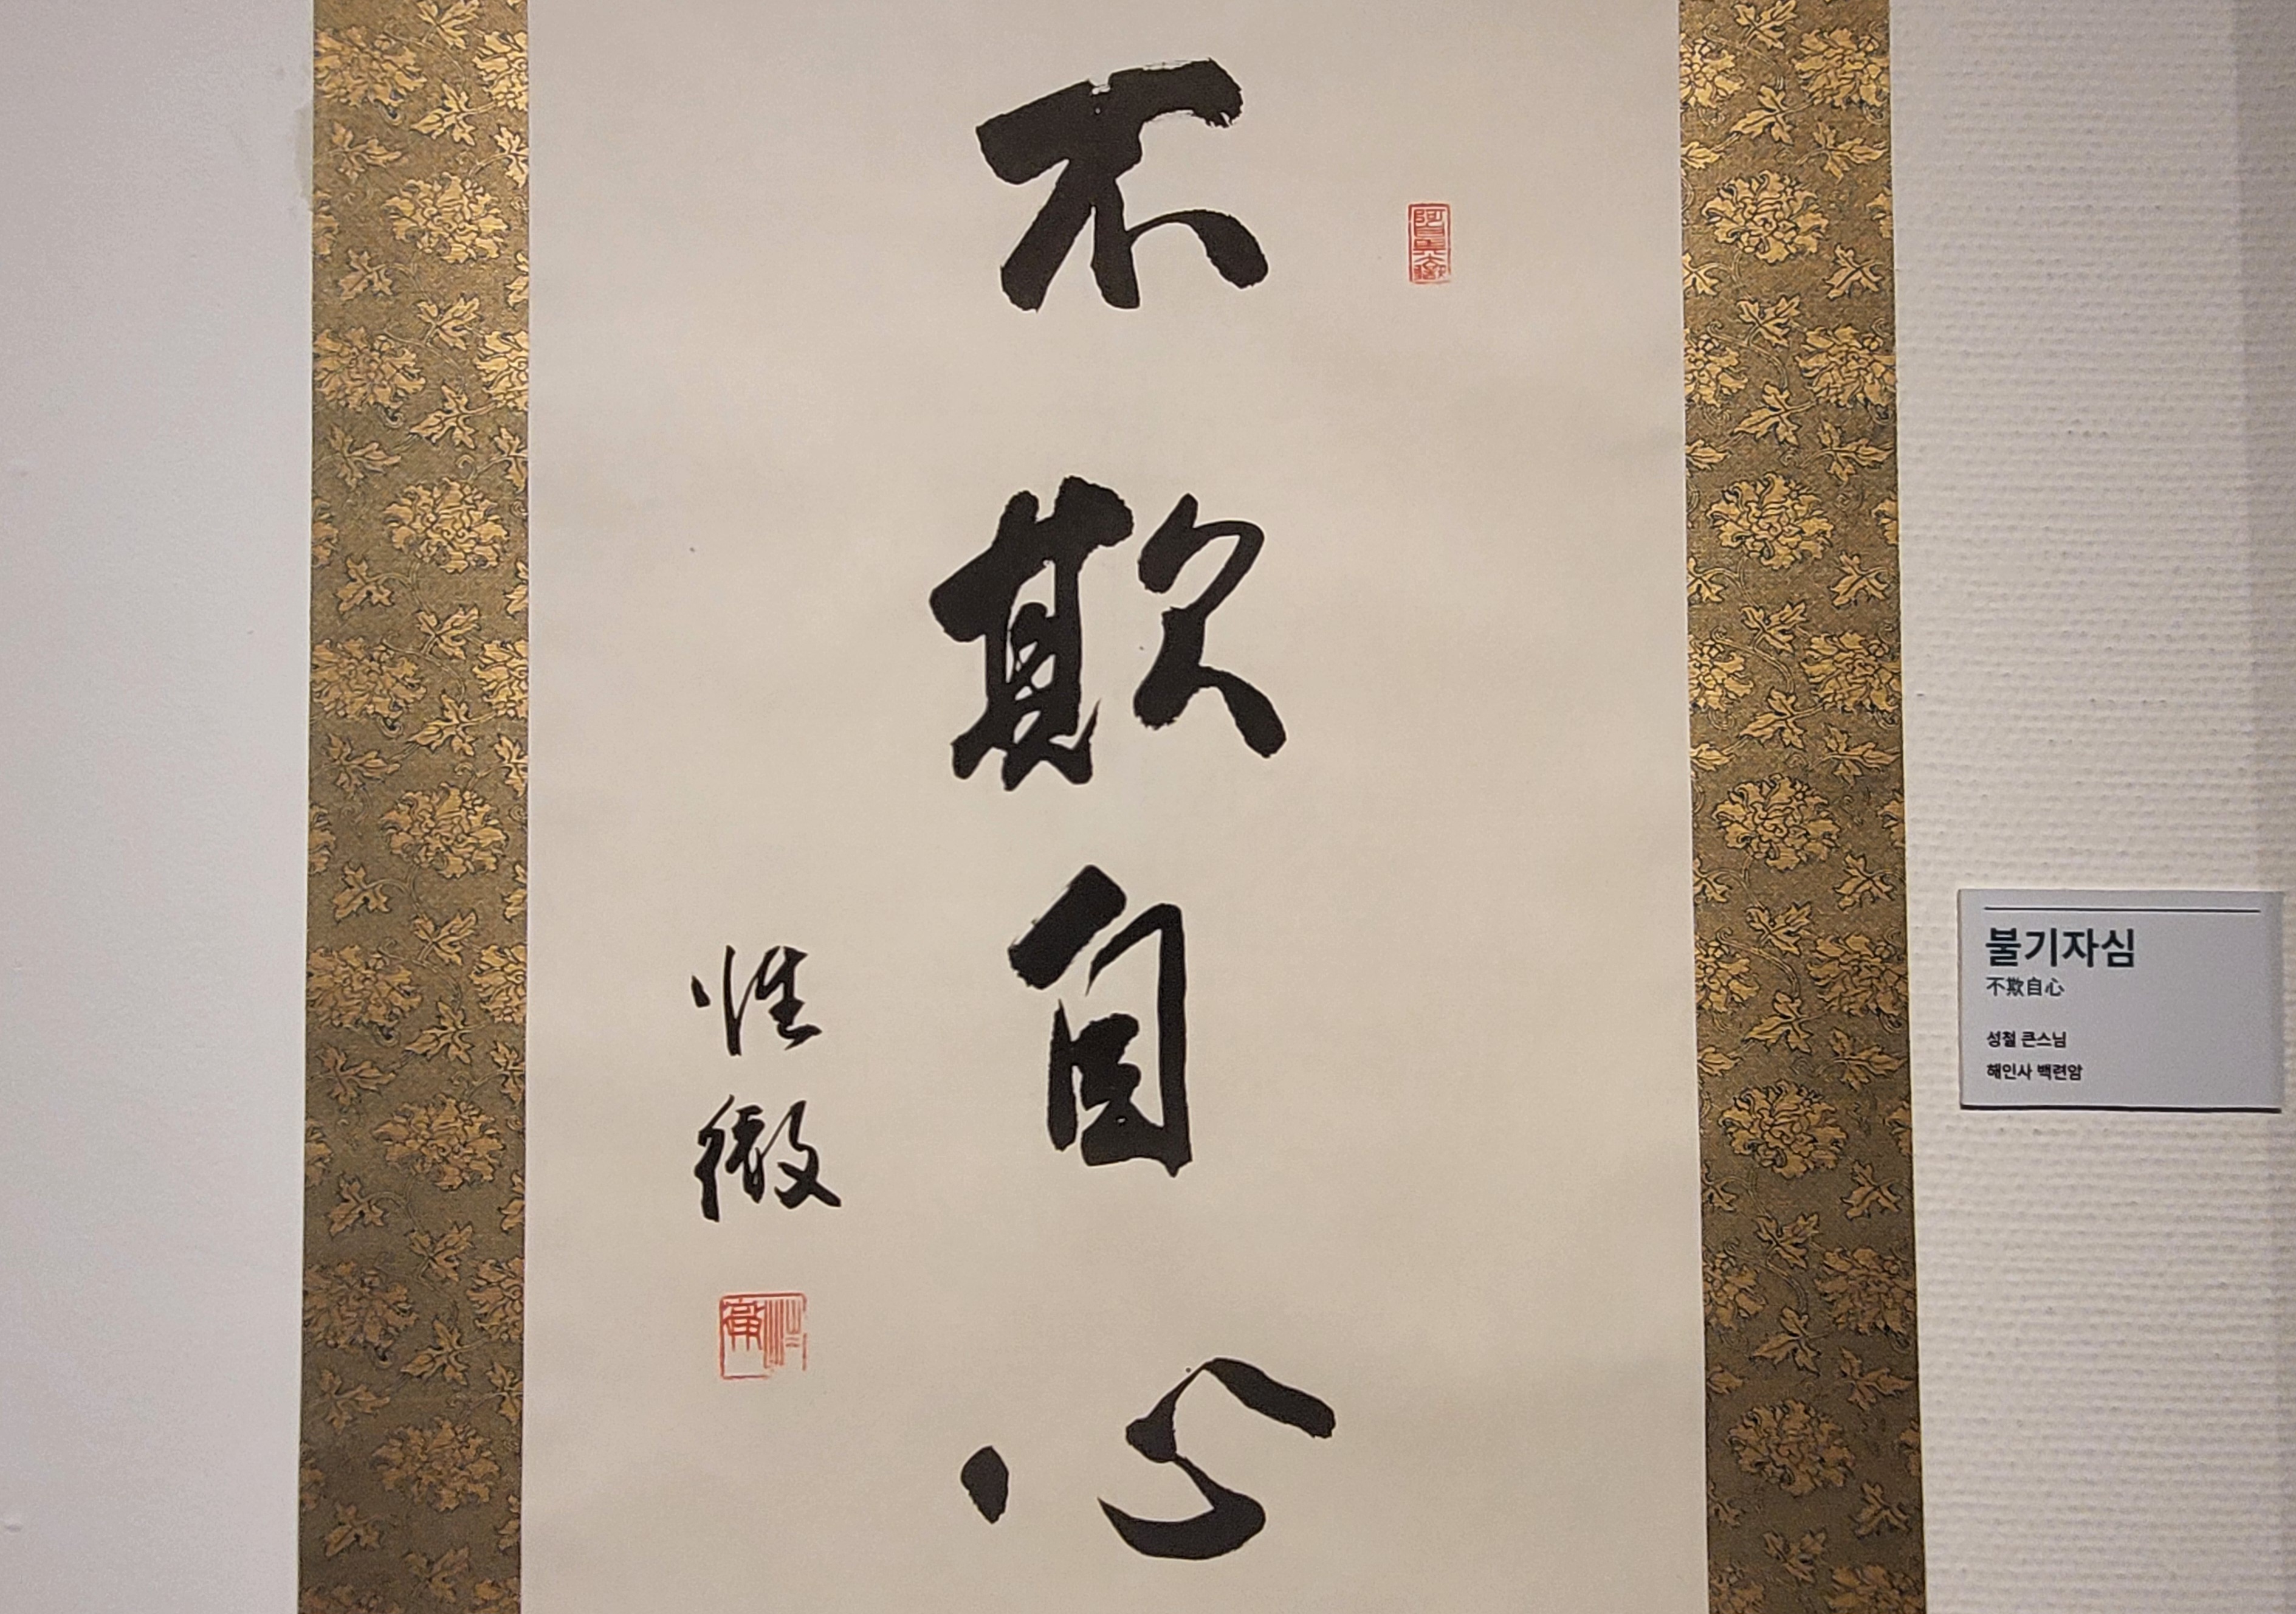 不欺自心
性徹
불기자심
不欺自心
성철 큰스님
해인사 백련암